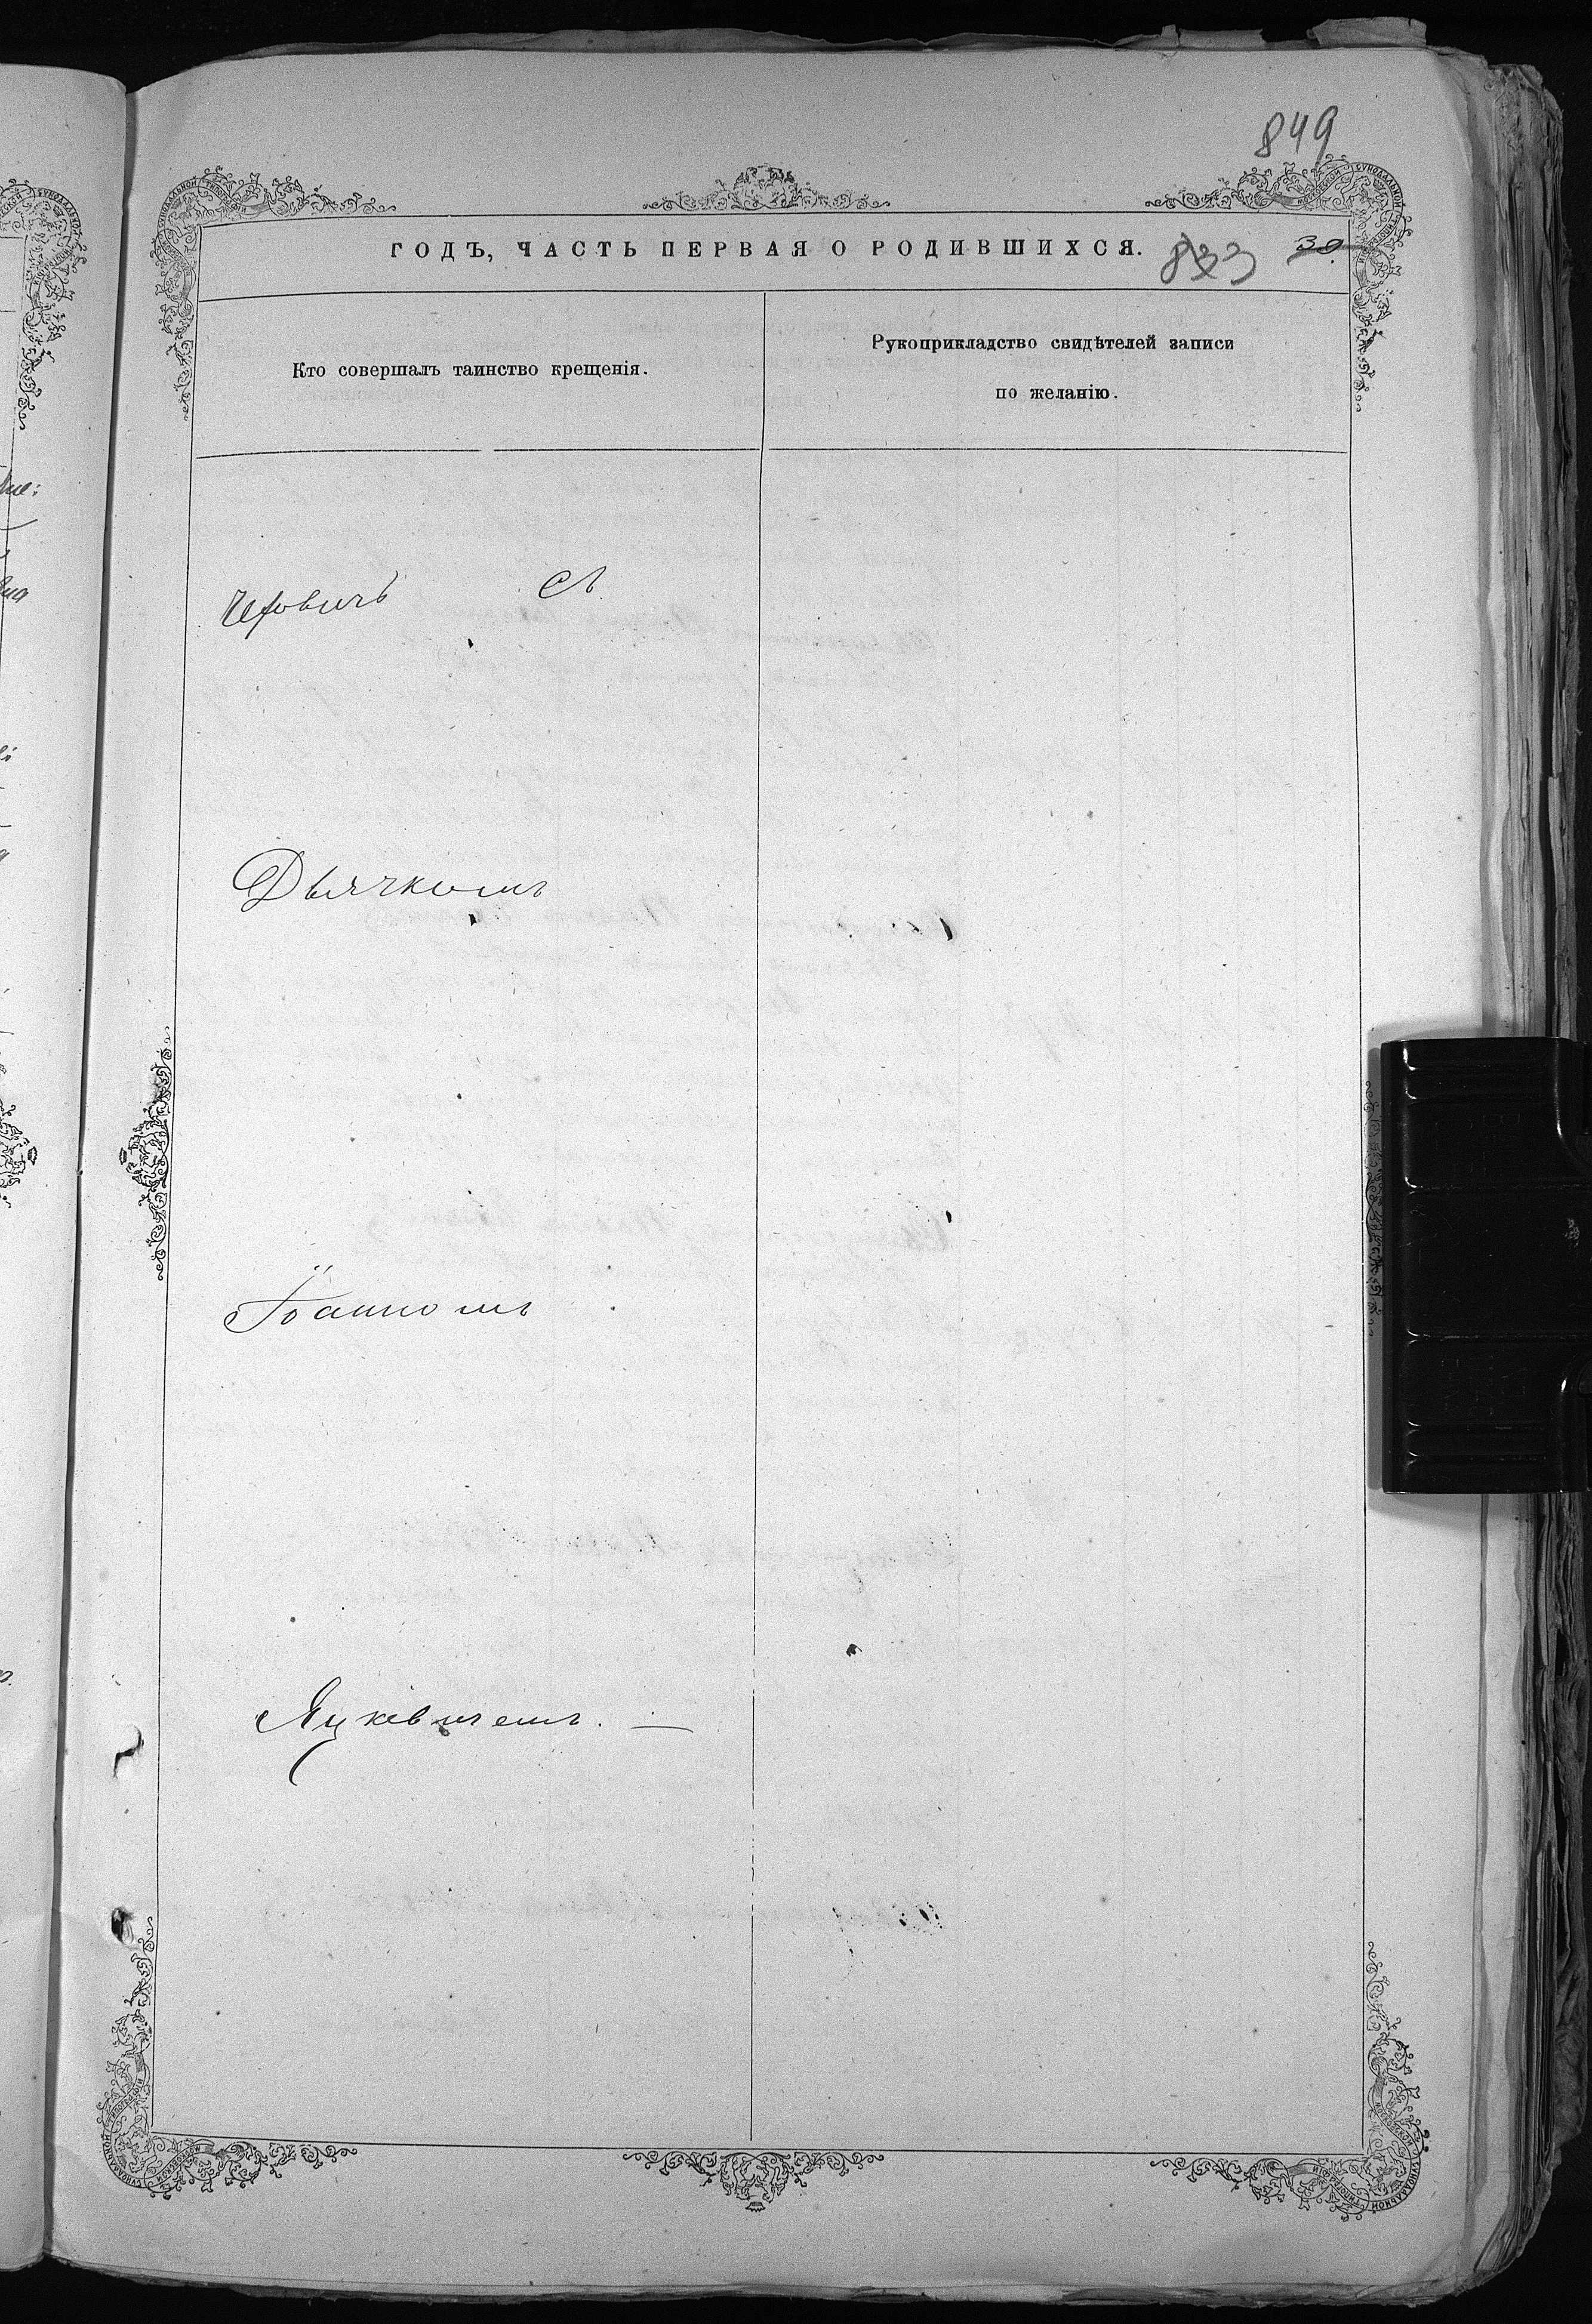 849
ГОДЪ, ЧАСТЬ ПЕРВАЯ О РОДИВШИХСЯ. 833 30.
Кто совершалъ таинство крещенія.
Рукоприкладство свидѣтелей записи
по желанію.
съ
Дьячкомъ
Іоанномъ
Яцкевичемъ. —